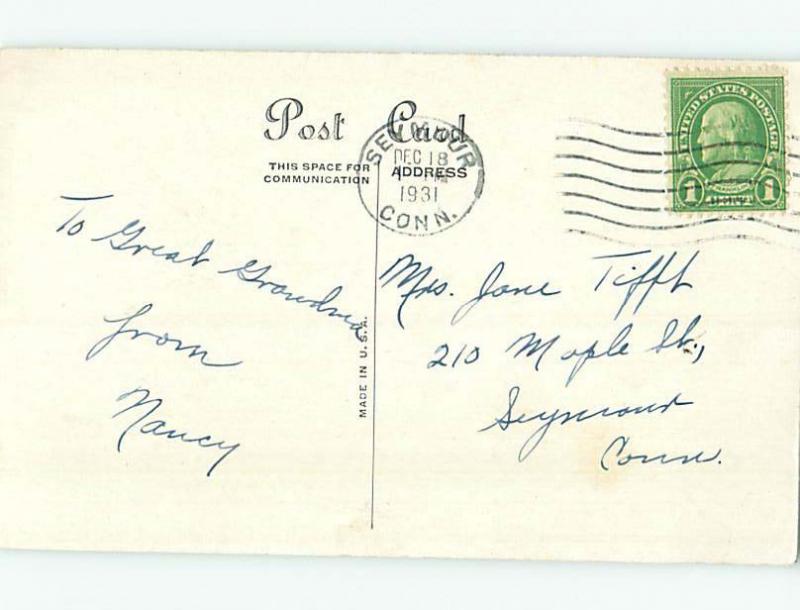 Post Card
THIS SPACE FOR
COMMUNICATION
ADDRESS
SEYMOUR
DEC 18
1931
CONN.
UNITED STATES POSTAGE
1 1
To Great Grandma
from
Nancy
MADE IN U.S.A.
Mrs. Jane Tifft
210 Maple St.,
Seymour
Conn.